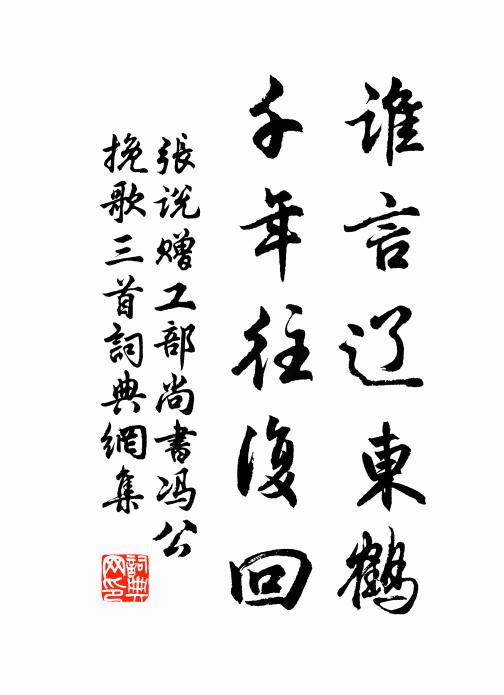 誰言辽東鶴
千年往復回
張说贈工部尚書冯公
挽歌三首詞典網集
詞典网印